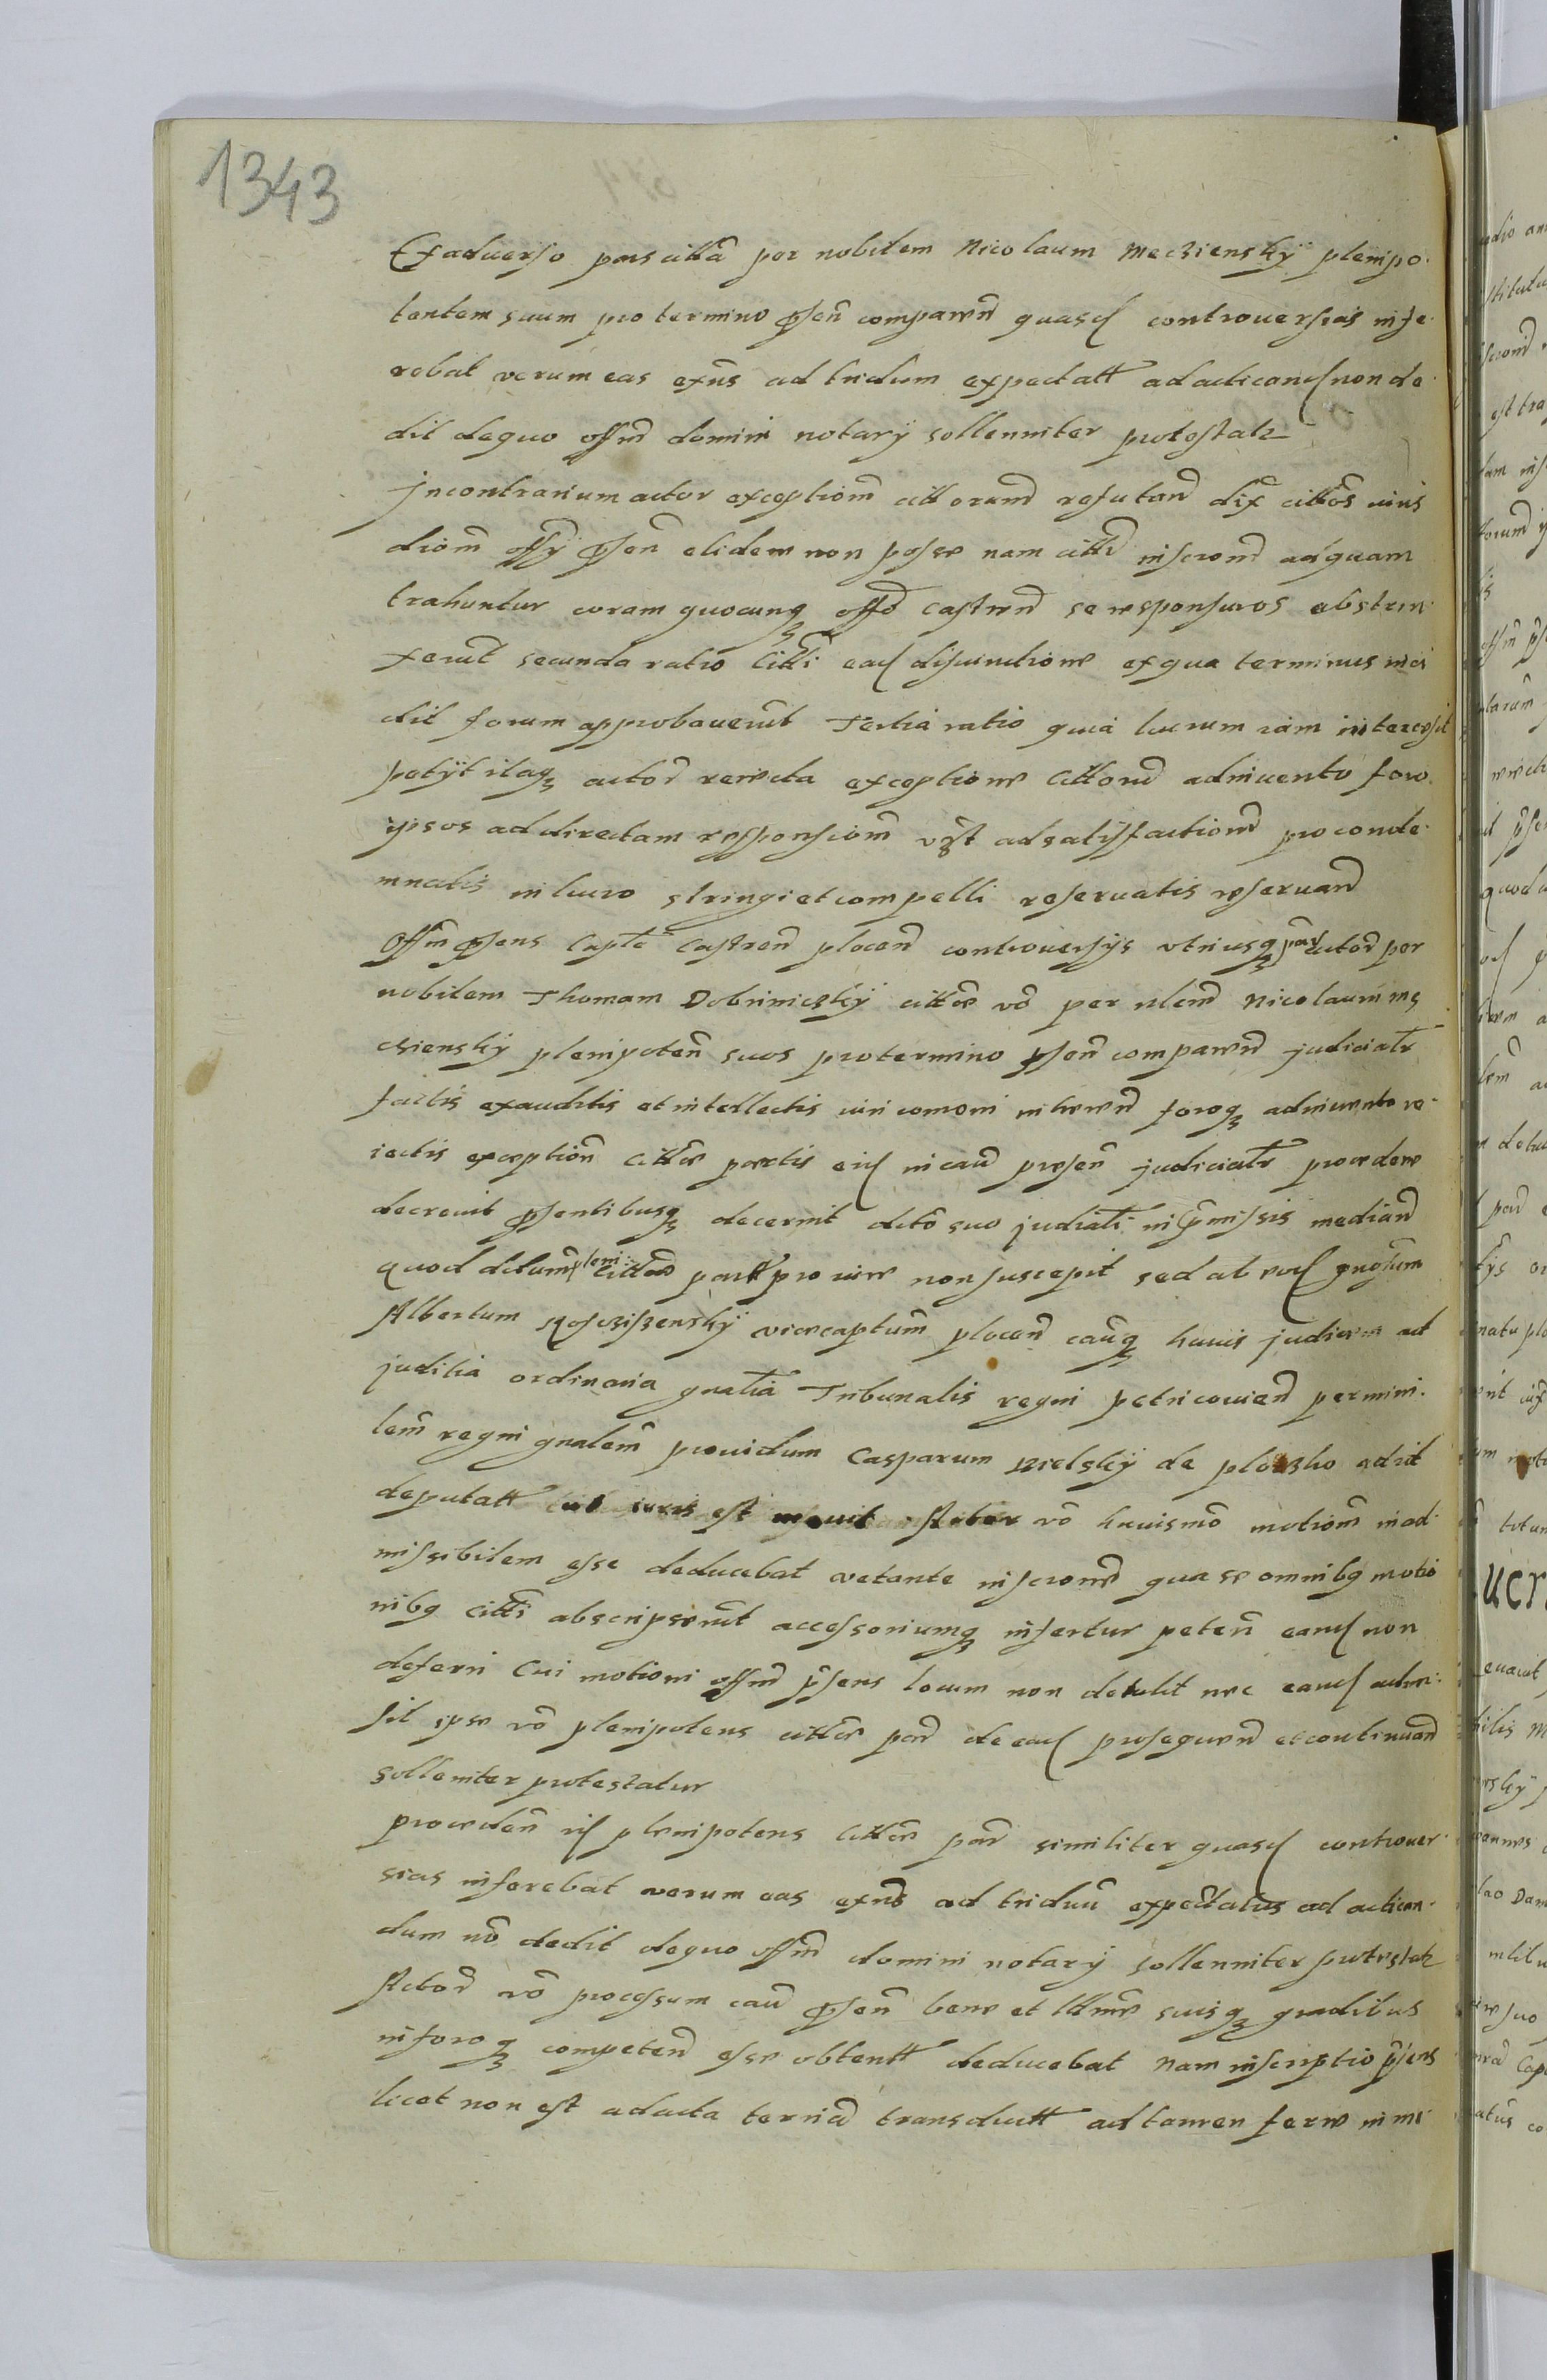 1343
Ex aduerso pars citta per nobilem Nicolaum Meczienskÿ plenipo
tentem suum pro termino psen comparen quasd controuersias infe
rebat verum eas exns ad triduum expectatt ad acticand non de
dit de quo offm domini notarÿ sollenniter protestatz
In contrarium actor exceptiom cittorum refutand dix cittos iuris
diom offÿ psen elidere non posse nam citti inscrone ad quam
trahuntur coram quocunq offo castren se responsuros abstrin
xerut secunda ratio Citti ead disiunctione ex qua terminus inci
dit forum approbauerut Tertia ratio quia lucrum iam intercessit
petÿt itaq actor reiecta exceptione Cittorum adinuento foro
ipsos ad directam responsiom vst ad satisfactionem pro conde
mnatis in lucro stringi et compelli reseruatis reseruand
Offm psens Captle Castren plocen controuersÿs vtriusq par actor per
nobilem Thomam Dobrinickÿ citte vo per nlem Nicolaum me
czienskÿ plenipoten suos pro termino psen comparen judicialr
factis exauditis et intellectis iuri comoni inheren foroq adinuento re
iectis exception citte partis eid in cau presen judicialr procedere
decreuit psentibusq decernit dcto suo judiciali in pmissis median
quod dictum citta pars pro iure non suscepit sed ab eod gnosum
Albertum Koscziszenskÿ vicecaptum plocen eamq huius judicem ad
juditia ordinaria gnalia Tribunalis regni petricouien per mini
lem regni gnalem prouidum Casparum Nielskÿ de ploczko ad id
deputatt vt iuris est mouit Actor vo huiusmo motiom inad
missibilem esse deducebat vetante inscrone qua se omnibq motio
nibq Citti abscripserut accessoriumq infertur peten eand non
deferri Cui motioni offm psens locum non detulit nec eand admi
sit ipse vo plenipotens citte par de ead prosequen et continuan
sollenniter protestatur
proceden id plenipotens Citte par similiter quasd controuer
sias inferebat verum eas exns ad triduu expectatus ad actican
dum no dedit de quo offm domini notarÿ sollenniter protestatz
Actor vo processum cau psen bene et lttime suisq gradibus
in foroq competen esse obtentt deducebat Nam inscriptio psens
licet non est ad acta terria transductt attamen fere in mi